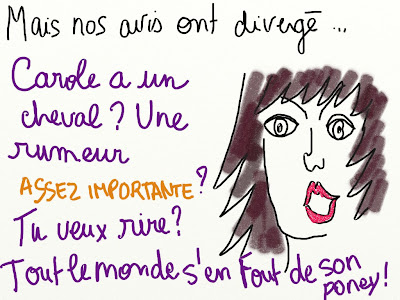 Mais nos avis ont divergé ...
Carole a un
cheval ? Une
rumeur
ASSEZ IMPORTANTE ?
Tu veux rire ?
Tout le monde s'en Fout de son
poney !